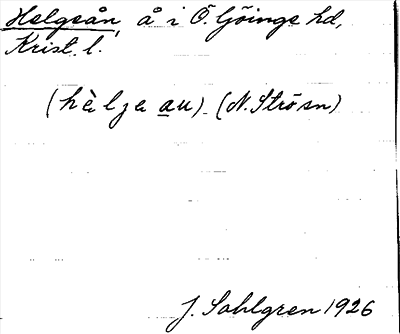 Helgeån, å i Ö. Göinge hd,
Krist. l.
(hèlʒa au). (N. Strö sn)
J. Sahlgren 1926